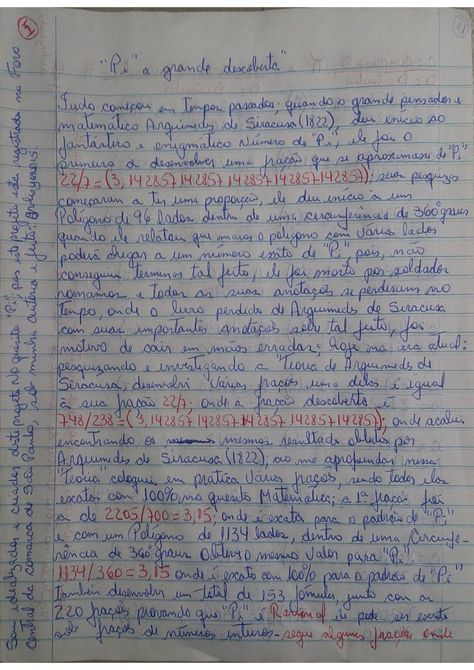 "Pi" a grande descoberta"
Tudo começou em tempos passados, quando o grande pensador e
matemático Arquimedes de Siracusa (1822), deu início ao
fantástico e enigmático número de "Pi", ele foi o
primeiro a desenvolver uma fração que se aproximasse de "Pi"
22/7 = (3,142857142857142857142857142857), suas pesquisas
começaram a ter uma proporção, ele deu início à um
Polígono de 96 lados dentro de uma circunferência de 360 graus
quando ele relatou que mais o polígono com vários lados
poderia chegar a um numero exato de "Pi", pois, não
conseguiu terminar tal feito, ele foi morto por soldados
romanos e todas as suas anotações se perderam no
tempo, onde o livro perdido de Arquimedes de Siracusa
com suas importantes anotações sobre tal feito, foi
motivo de cair em mãos erradas; hoje na era atual:
pesquisando e investigando a "Teoria de Arquimedes de
Siracusa, desenvolvi várias frações uma delas é igual
à sua fração 22/7; onde a fração descoberta é
748/238 = (3,14285714285714285714285714285), onde acabei
encontrando os mesmos resultados obtidos por
Arquimedes de Siracusa (1822), ao me aprofundar nessa
"Teoria" coloquei em pratica várias frações, sendo todas elas
exatas com 100% no quesito Matemática; a 1ª fração foi
a de 2205/700 = 3,15; onde é exata para o padrão de "Pi"
e com um Polígono de 1134 lados, dentro de uma Circunfe-
rência de 360 graus Obtive o mesmo valor para "Pi"
1134/360 = 3,15 onde é exato com 100% para o padrão de "Pi"
também desenvolvi um total de 153 fórmulas, junto com as
220 frações provando que "Pi" é Racional ele pode ser escrito
sob frações de números inteiros - segue algumas frações onde
Sou idealizador e criador deste projeto no quesito "Pi", pois este projeto está registrado no Foro
Central da comarca de São Paulo, sob minha autoria e feitos